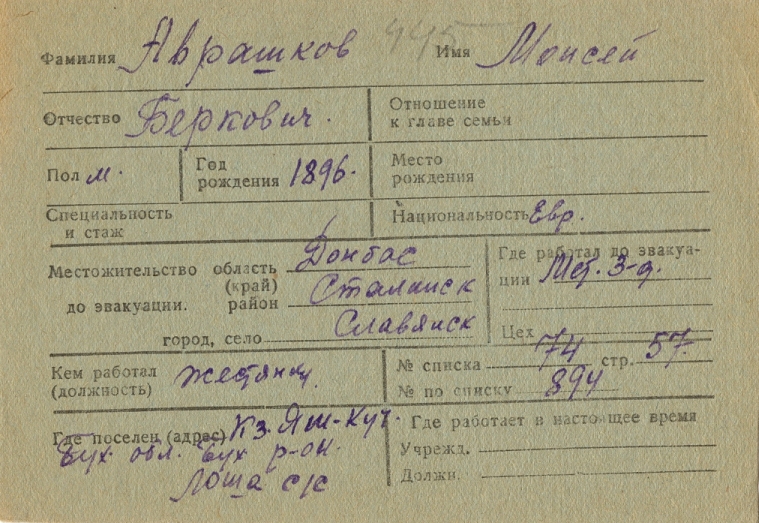 Фамилия Аврашков 445 Имя Моисей
Отчество Беркович. Отношение к главе семьи
Пол м. Год рождения 1896. Место рождения
Специальность и стаж Национальность Евр.
Местожительство до эвакуации. область (край) Донбас
район Сталинск
город, село Славянск
Где работал до эвакуации Мет. З-д.
Цех
Кем работал (должность) жестянщ.
№ списка 74 стр. 57.
№ по списку 894
Где поселен (адрес) Кз. Яш-Куч.
Бух. обл. Бух р-он.
Лоша с/с
Где работает в настоящее время
Учрежд.
Должн.